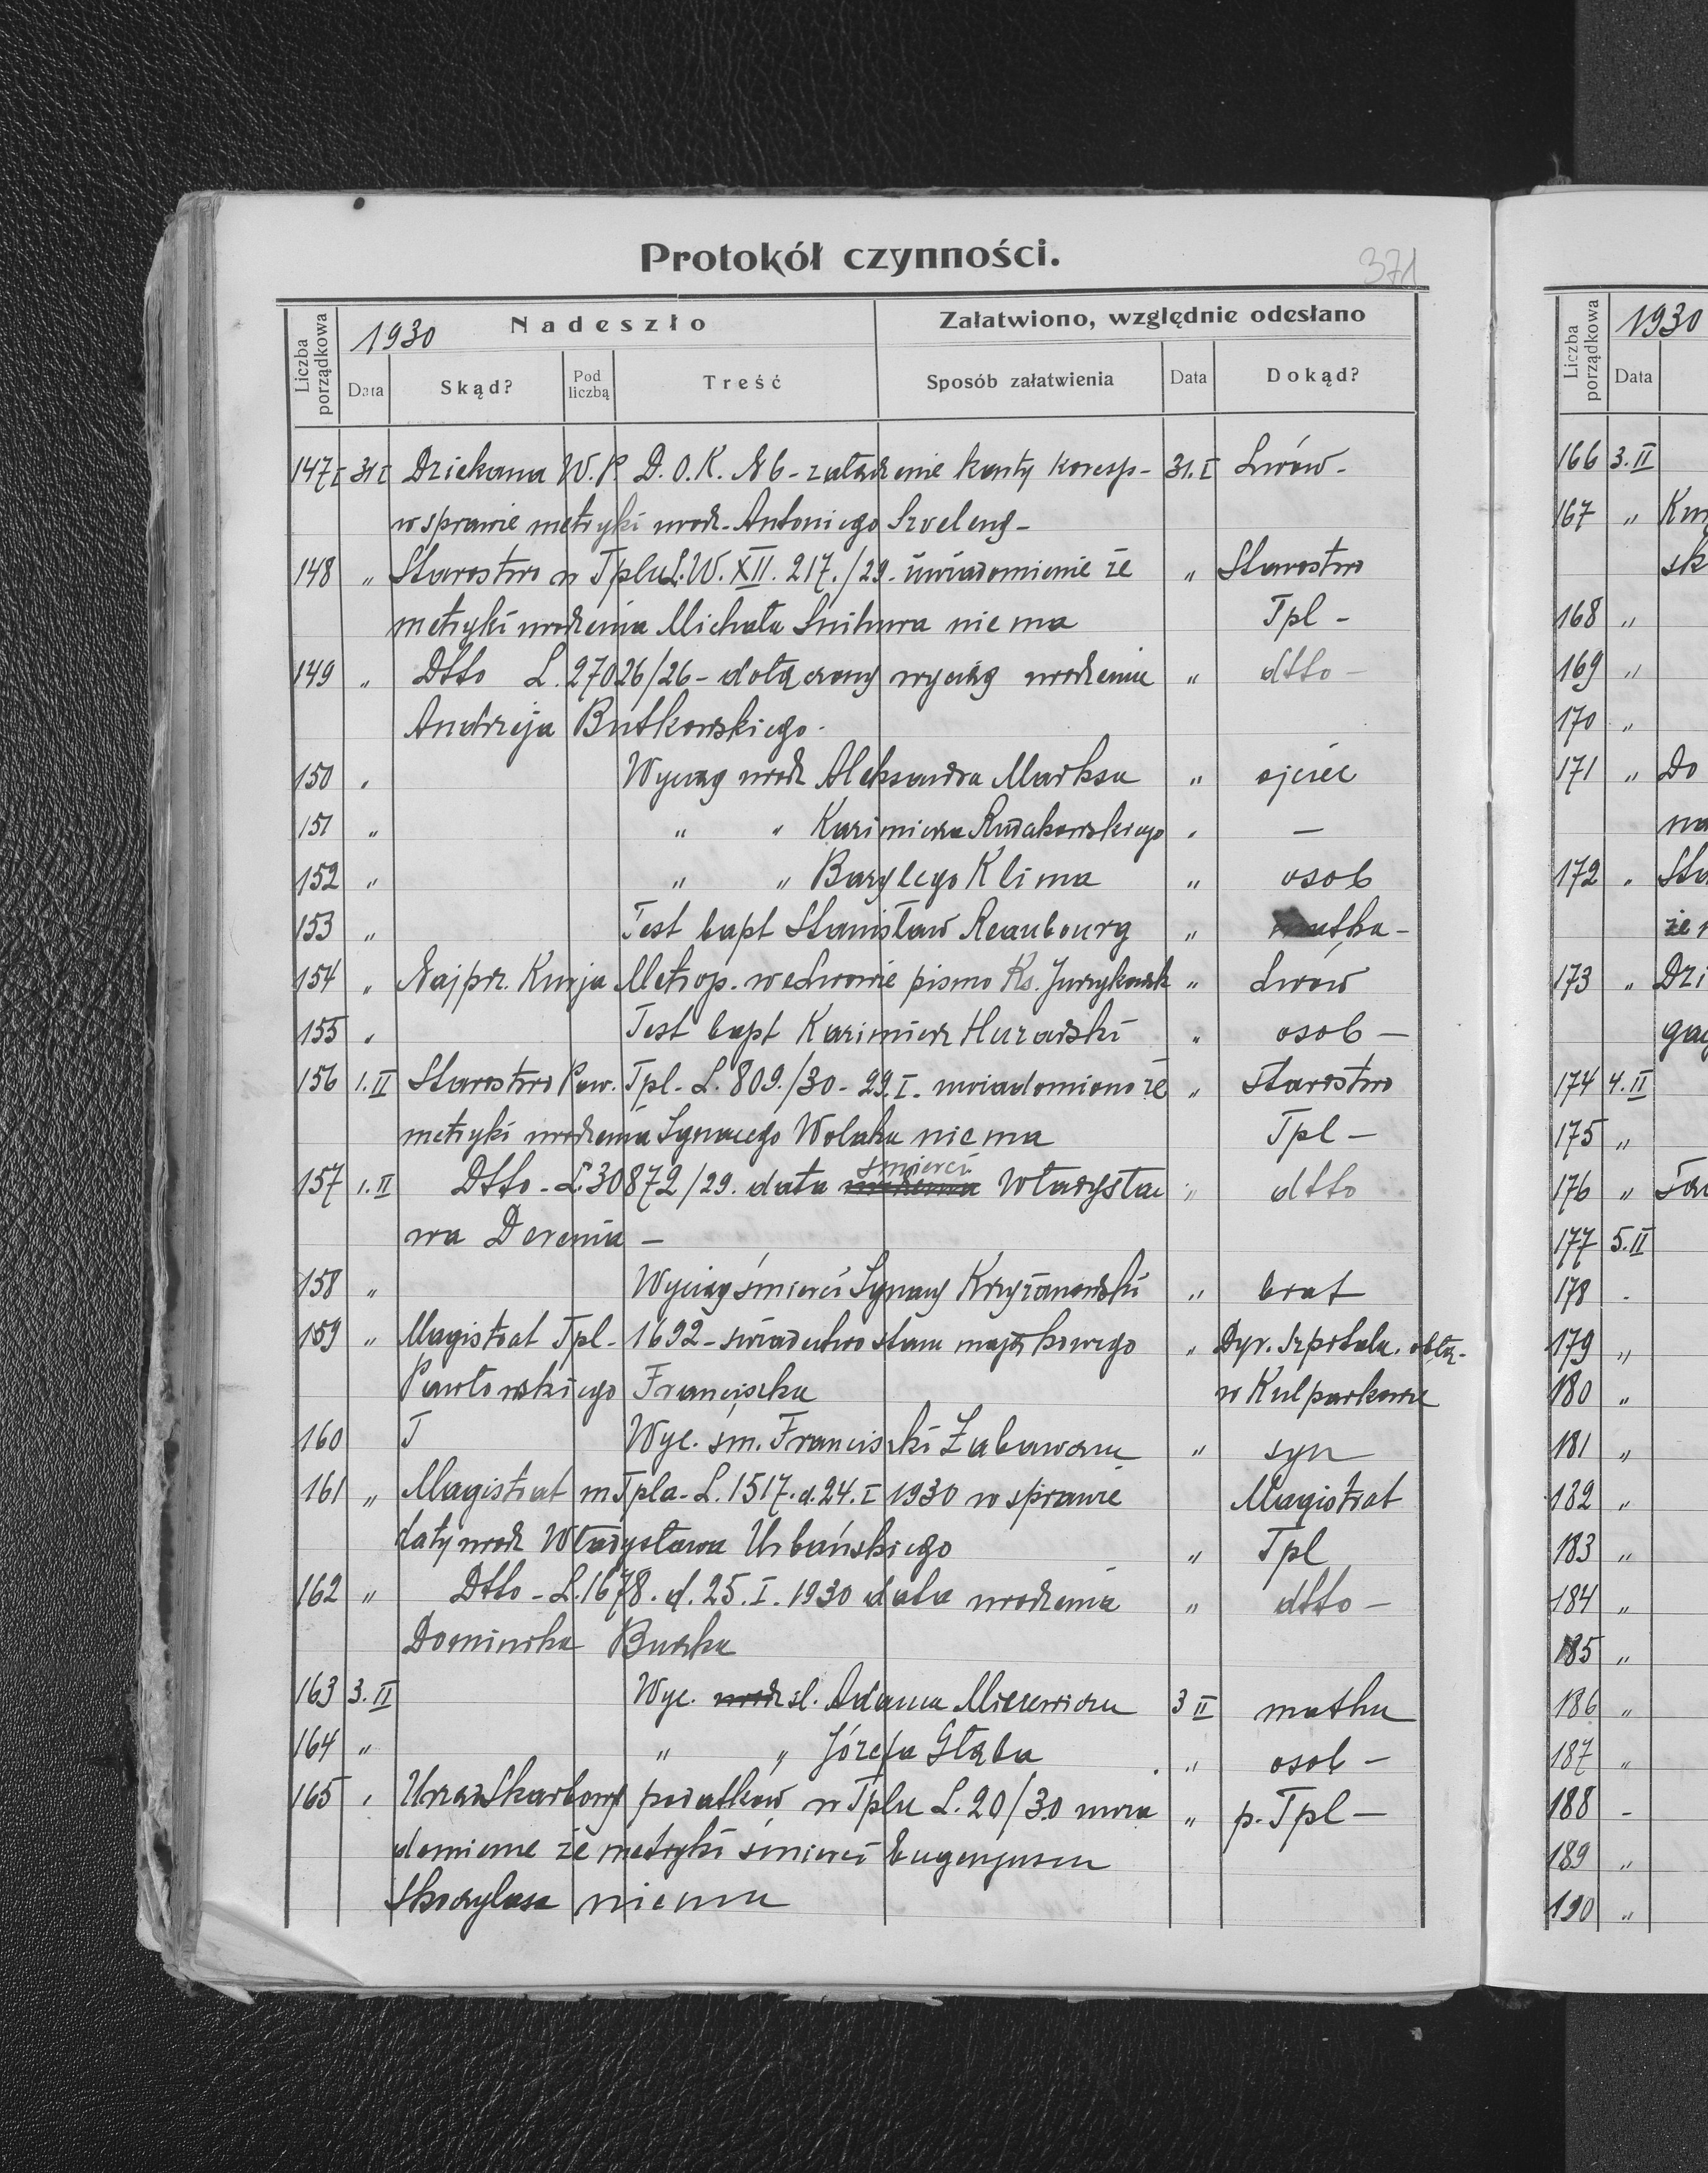 Protokół czynności.
371
Liczba porządkowa
1930
Nadeszło
Załatwiono, względnie odesłano
Data
Skąd?
Pod liczbą
Treść
Sposób załatwienia
Data
Dokąd?
147 31 I Dziekana W.P. D.O.K. № 6 - załącz enie karty koresp- 31.I Lwów-
w sprawie metryki urodz. Antoniego
148 " Starostwo w Tplu L.W. XII. 217./29. uwiadomienie że " Starostwo
metryki urodzenia Michała Snihura niema Tpl -
149 " Dtto L. 27026/26 - dołączony wyciąg urodzenia " dtto -
Andrzeja Butkowskiego.
150 " Wyciąg urodz Aleksandra Marksa " ojciec
151 " " " Kazimierza Rudakowskiego " —
152 " " " Bazylego Klima " osob
153 " Test bapt Stanisław Reaubourg " matka -
154 " Najprz. Kurja Metrop. we Lwowie pismo Ks. " Lwów
155 " Test bapt Kazimierz Huzarski " osob —
156 1.II Starostwo Pow. Tpl - L. 809./30 - 29.I. uwiadomiono że " Starostwo
metryki urodzenia Ignacego Wolaka niema Tpl —
śmierci
157 1.II Dtto - L. 30872/29. data urodzenia Władysła " dtto
wa Derenia —
158 " Wyciąg śmierci Ignacy Krzyżanowski " brat
159 " Magistrat Tpl - 1692 - świadectwo stanu majątkowego " Dyr. Szpitala. obłą-
Pawłowskiego Franciszka w Kulparkowie
160 T Wyc. śm. Franciszki " syn
161 " Magistrat m Tpla - L. 1517. d. 24. I 1930 w sprawie Magistrat
daty urodz Władysława Urbańskiego " Tpl
162 " Dtto - L. 1678. d. 25. I. 1930 data urodzenia " dtto —
Dominika Burka
163 3.II Wyc. urodz śl. Adama 3 II matka
164 " " " Józefa Głąba " osob -
165 " Urząd Skarbowy podatków w Tplu L. 20/30 uwia " p. Tpl —
domienie że metryki śmierci Eugenjusza
Skoczylasa niema
Liczba porządkowa
1930
Data
166 3.II
167 "
168 "
169 "
170 "
171 " Do
172 "
że
173 " Dzi
174 4.II
175 "
176 "
177 5.II
178 -
179 "
180 "
181 "
182 "
183 "
184 "
185 "
186 "
187 "
188 -
189 "
190 "